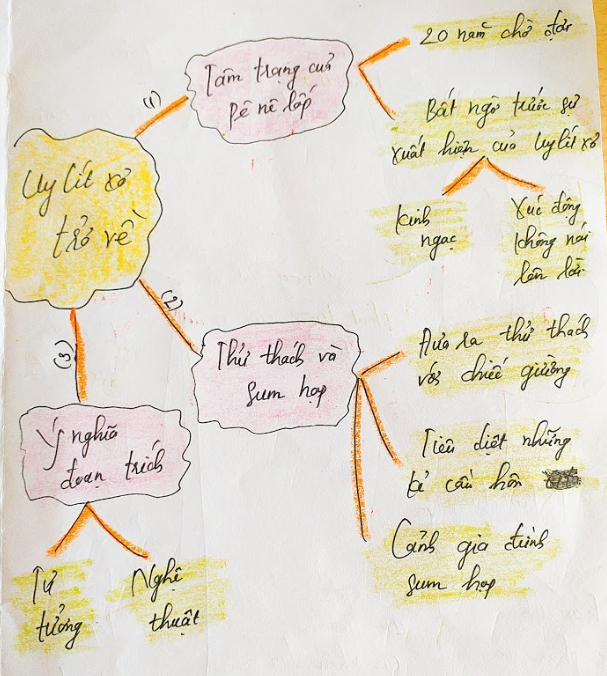 Uy lít xơ
trở về
(1)
Tâm trạng của
Pê nê lốp
20 năm chờ đợi
Bất ngờ trước sự
xuất hiện của Uylítxơ
Kinh
ngạc
Xúc động
không nói
lên lời
(2)
Thử thách và
sum họp
Đưa ra thử thách
với chiếc giường
Tiêu diệt những
kẻ cầu hôn
Cảnh gia đình
sum họp
(3)
Ý nghĩa
đoạn trích
Tư
tưởng
Nghệ
thuật